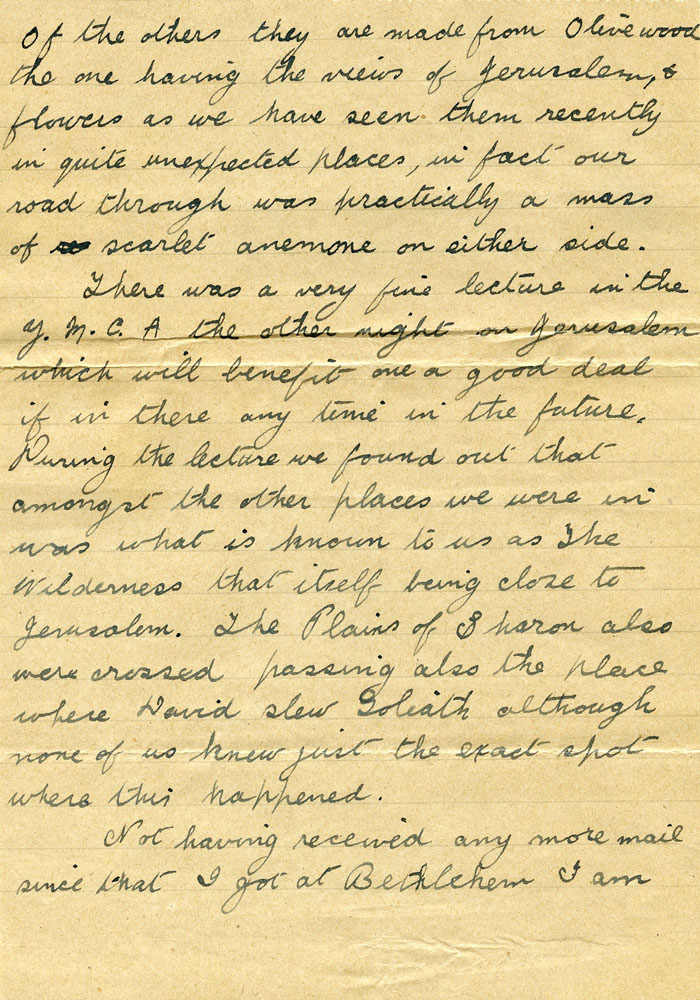 Of the others they are made from Olivewood
the one having the views of Jerusalem, &
flowers as we have seen them recently
in quite unexpected places, in fact our
road through was practically a mass
of scarlet anemone on either side.
There was a very fine lecture in the
Y. M. C. A the other night on Jerusalem
which will benefit one a good deal
if in there any time in the future.
During the lecture we found out that
amongst the other places we were in
was what is known to us as The
Wilderness that itself being close to
Jerusalem. The Plains of Sharon also
were crossed passing also the place
where David slew Goliath although
none of us knew just the exact spot
where this happened.
Not having received any more mail
since that I got at Bethlehem I am